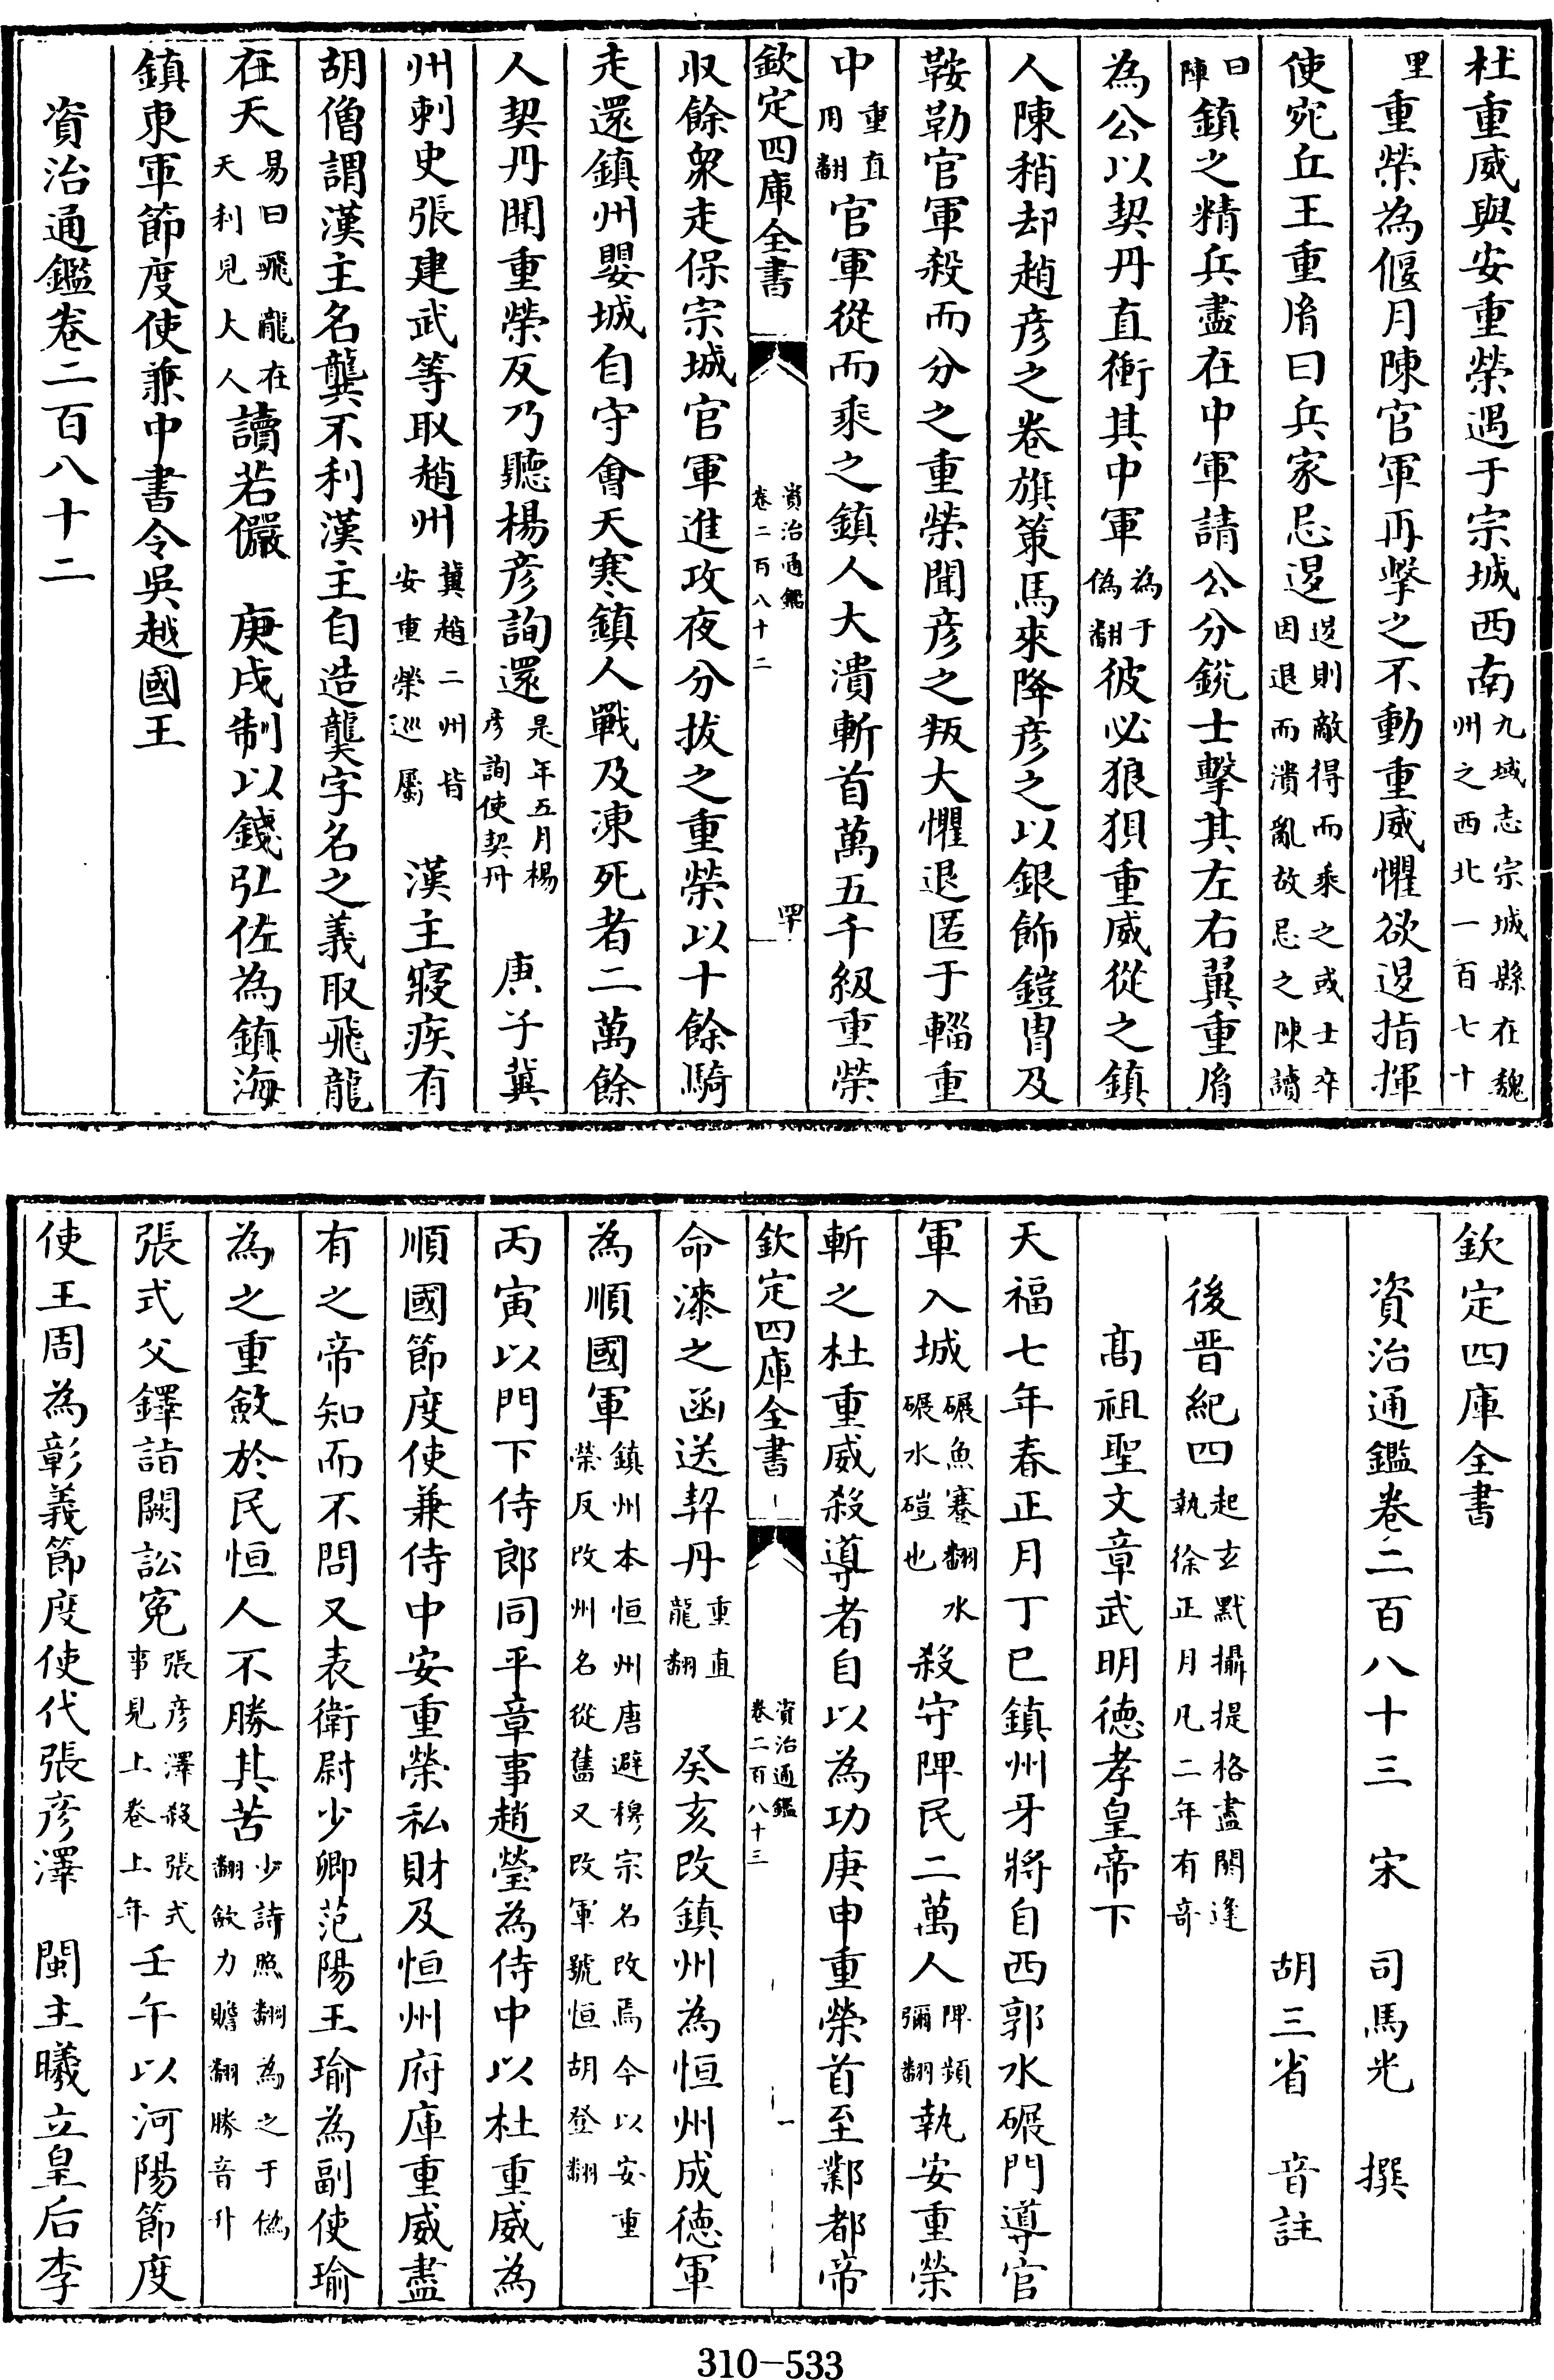 杜重威與安重榮遇于宗城西南九域志宗城縣在魏州之西北一百七十
里重榮為偃月陳官軍再擊之不動重威懼欲退指揮
使宛丘王重𦙍曰兵家忌退退則敵得而乘之或士卒因退而潰亂故忌之陳讀
曰陣鎮之精兵盡在中軍請公分銳士擊其左右翼重𦙍
為公以契丹直衝其中軍為于偽翻彼必狼狽重威從之鎮
人陳稍却趙彦之卷旗策馬來降彦之以銀飾鎧冑及
鞍勒官軍殺而分之重榮聞彦之叛大懼退匿于輜重
中重直用翻官軍從而乘之鎮人大潰斬首萬五千級重榮
欽定四庫全書 資治通鑑卷二百八十二 四十
収餘衆走保宗城官軍進攻夜分拔之重榮以十餘騎
走還鎮州嬰城自守會天寒鎮人戰及凍死者二萬餘
人契丹聞重榮反乃聽楊彦詢還是年五月楊彦詢使契丹 庚子冀
州刺史張建武等取趙州冀趙二州皆安重榮巡屬 漢主寢疾有
胡僧謂漢主名龔不利漢主自造龑字名之義取飛龍
在天易曰飛龍在天利見大人讀若儼 庚戌制以錢弘佐為鎮海
鎮東軍節度使兼中書令吳越國王
資治通鑑卷二百八十二
欽定四庫全書
資治通鑑卷二百八十三 宋 司馬光 撰
胡三省 音註
後晋紀四起玄黓攝提格盡閼逢執徐正月凡二年有奇
髙祖聖文章武明德孝皇帝下
天福七年春正月丁巳鎮州牙將自西郭水碾門導官
軍入城碾魚蹇翻水碾水磑也殺守陴民二萬人陴頻彌翻執安重榮
斬之杜重威殺導者自以為功庚申重榮首至鄴都帝
欽定四庫全書 資治通鑑卷二百八十三 一
命漆之函送契丹重直龍翻 癸亥改鎮州為恒州成德軍
為順國軍鎮州本恒州唐避穆宗名改焉今以安重榮反改州名從舊又改軍號恒胡登翻
丙寅以門下侍郎同平章事趙瑩為侍中以杜重威為
順國節度使兼侍中安重榮私財及恒州府庫重威盡
有之帝知而不問又表衛尉少卿范陽王瑜為副使瑜
為之重斂於民恒人不勝其苦少詩照翻為之于偽翻斂力贍翻勝音升
張式父鐸詣闕訟寃張彦澤殺張式事見上卷上年壬午以河陽節度
使王周為彰義節度使代張彦澤 閩主曦立皇后李
310-533